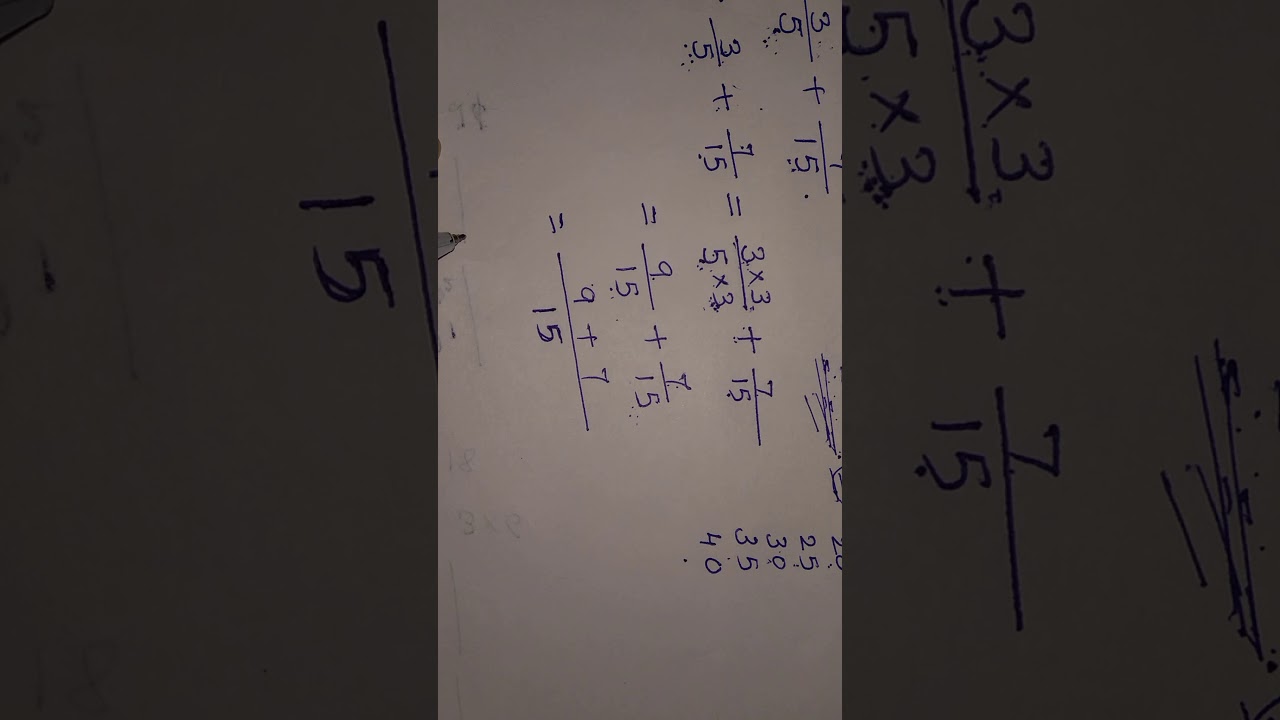 3/5 + 7/15.
3/5 + 7/15 = 3×3/5×3 + 7/15
= 9/15 + 7/15
= 9 + 7/15
25
30
35
40